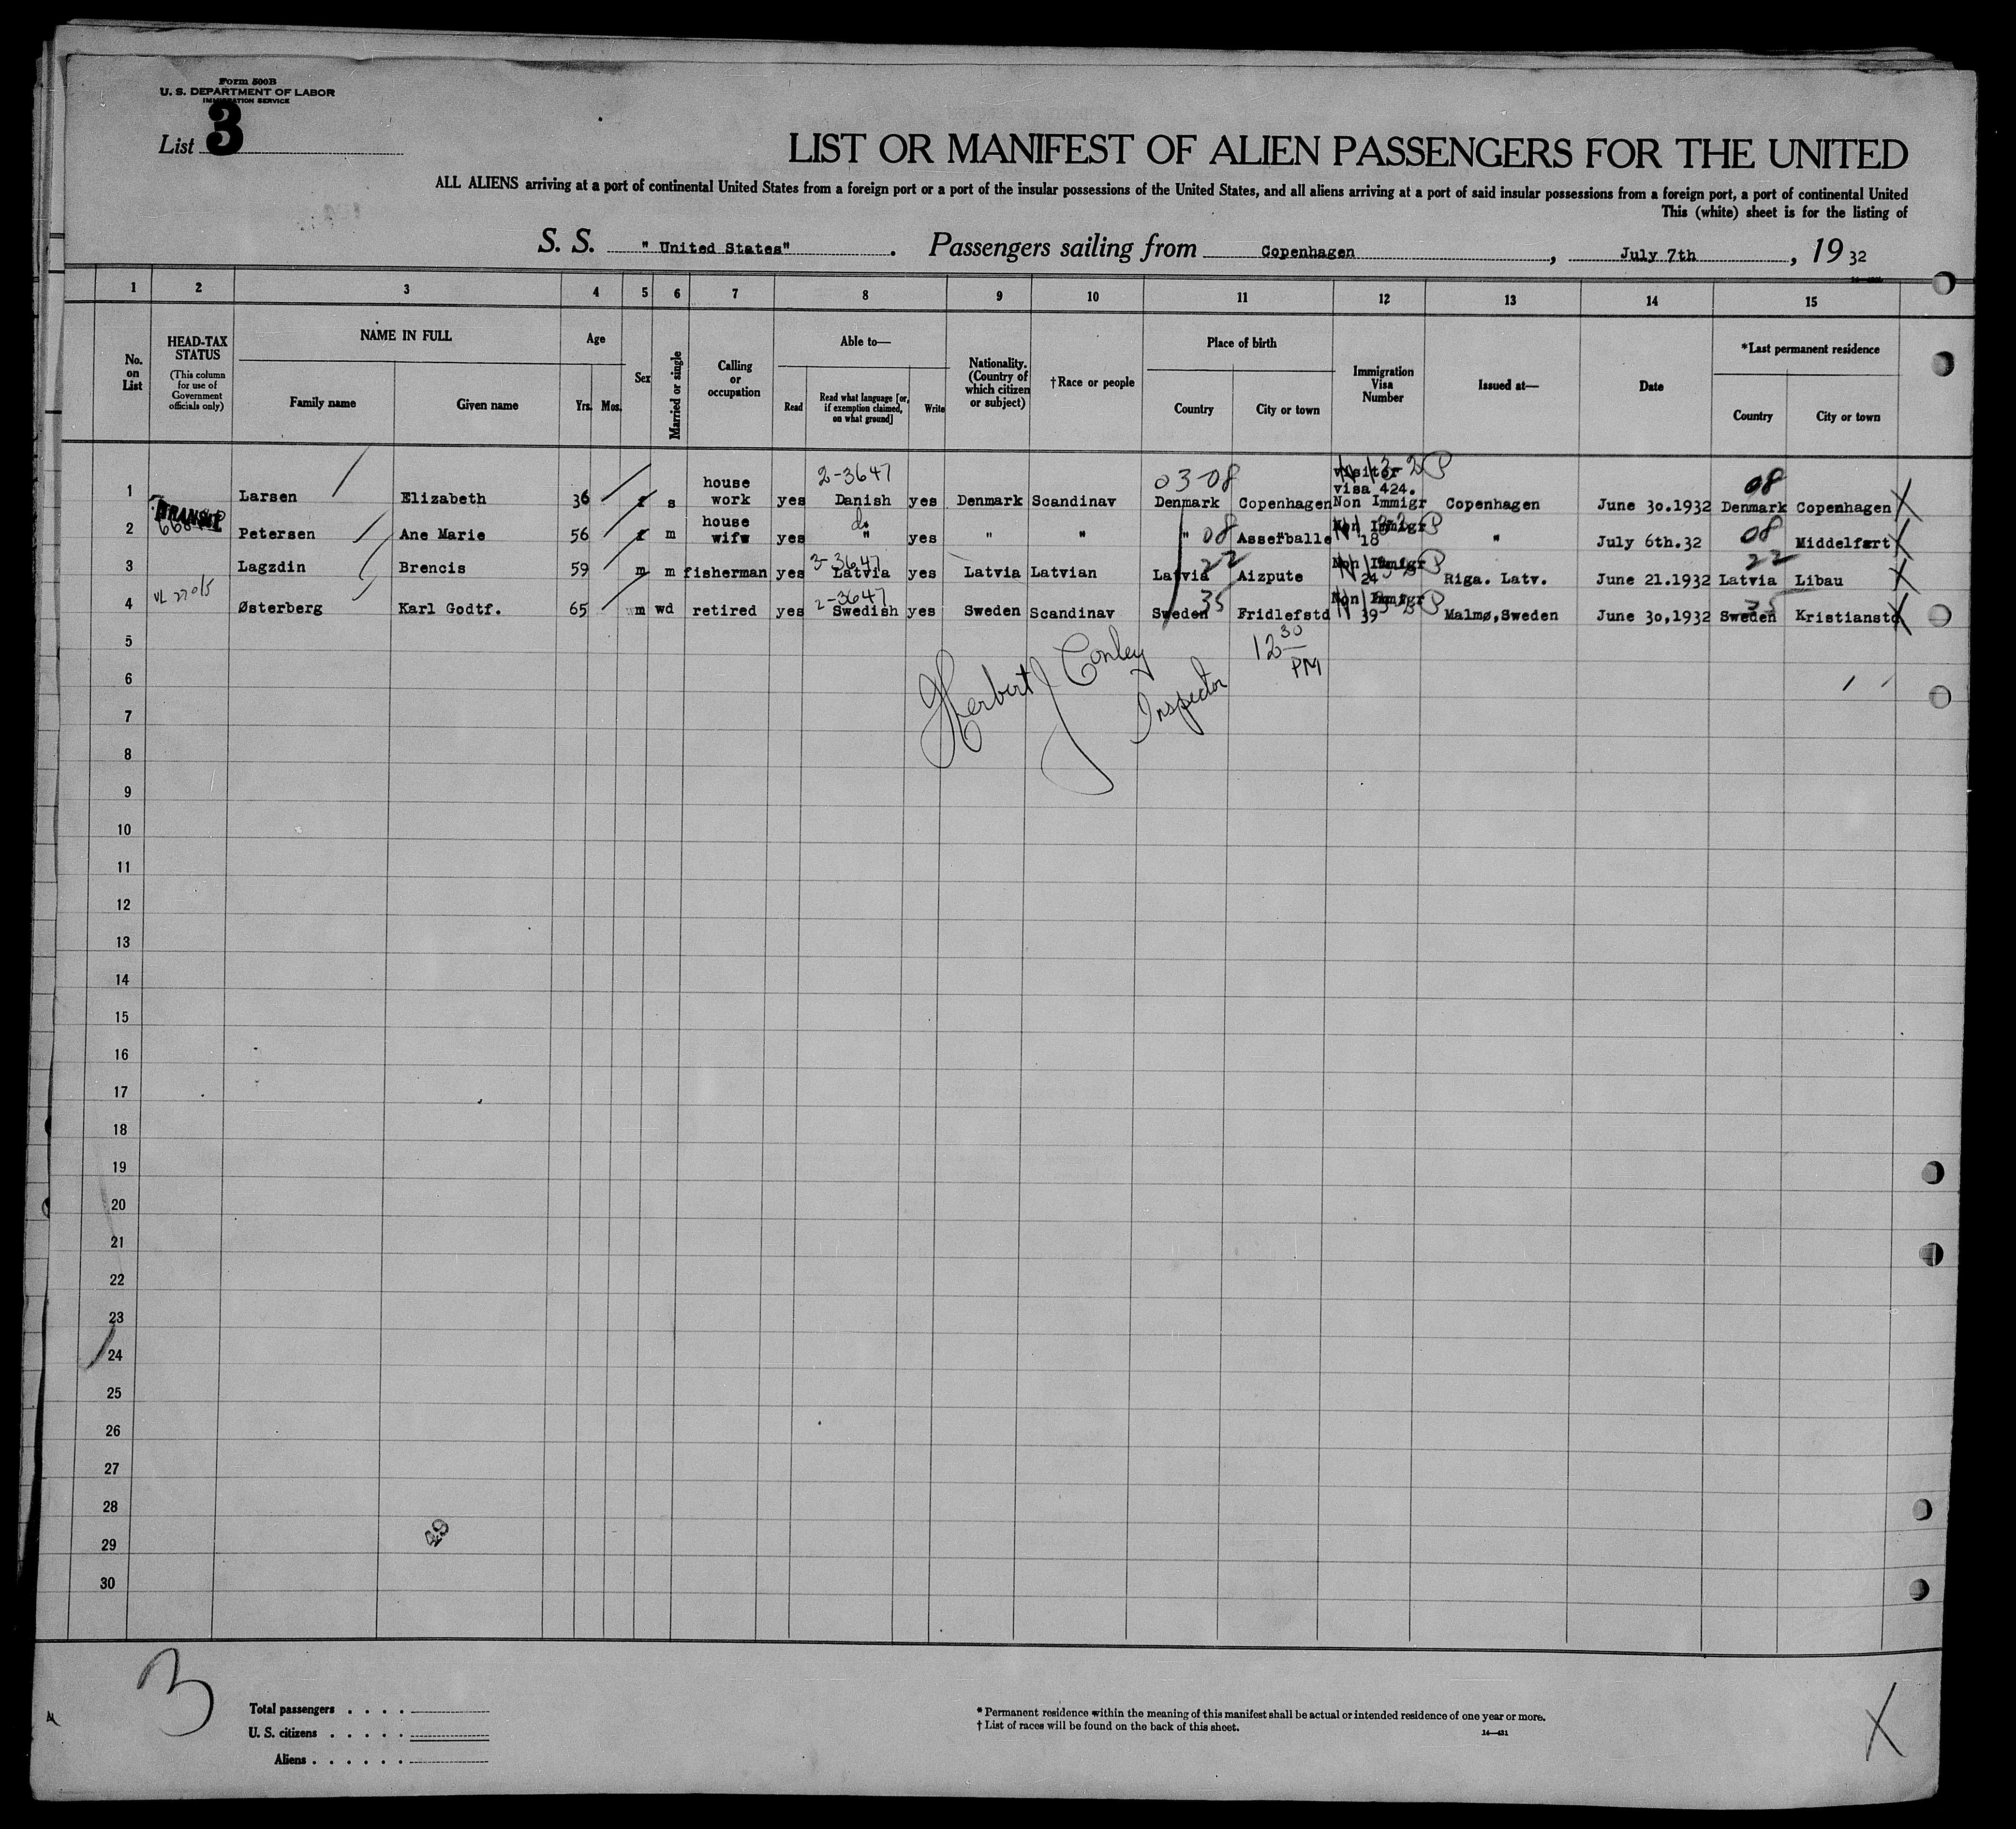 Form 500B
U. S. DEPARTMENT OF LABOR
IMMIGRATION SERVICE
List 3
LIST OR MANIFEST OF ALIEN PASSENGERS FOR THE UNITED
ALL ALIENS arriving at a port of continental United States from a foreign port or a port of the insular possessions of the United States, and all aliens arriving at a port of said insular possessions from a foreign port, a port of continental United
This (white) sheet is for the listing of
S. S. " United States" . Passengers sailing from Copenhagen , July 7th , 19 32
1 2 3 4 5 6 7 8 9 10 11 12 13 14 15
No. on List
HEAD-TAX STATUS
(This column for use of Government officials only)
NAME IN FULL
Family name
Given name
Age
Yrs.
Mos.
Sex
Married or single
Calling or occupation
Able to—
Read
Read what language [or, if exemption claimed, on what ground]
Write
Nationality. (Country of which citizen or subject)
†Race or people
Place of birth
Country
City or town
Immigration Visa Number
Issued at—
Date
*Last permanent residence
Country
City or town
2-3647 03-08 visitor 08
1 Larsen Elizabeth 36 f s house work yes Danish yes Denmark Scandinav Denmark Copenhagen visa 424. Non Immigr Copenhagen June 30.1932 Denmark Copenhagen X
TRANSIT
2 Petersen Ane Marie 56 f m house wife yes " yes " " " 08 Asserballe Non Immigr 18 " July 6th.32 08 Middelfart X
3-3647 22 22
3 Lagzdin Brencis 59 m m fisherman yes Latvia yes Latvia Latvian Latvia Aizpute Non Immigr 24 Riga. Latv. June 21.1932 Latvia Libau X
2-3647 35 35
4 Østerberg Karl Godtf. 65 m wd retired yes Swedish yes Sweden Scandinav Sweden Fridlefstd Non Immigr 39 Malmø,Sweden June 30,1932 Sweden Kristianstd X
5
Herbert J Conley
Inspector
12 30 PM
6
7
8
9
10
11
12
13
14
15
16
17
18
19
20
21
22
23
24
25
26
27
28
29
49
30
3
Total passengers . . . .
U. S. citizens . . . . .
Aliens . . . . . .
* Permanent residence within the meaning of this manifest shall be actual or intended residence of one year or more.
† List of races will be found on the back of this sheet.
14—431
X